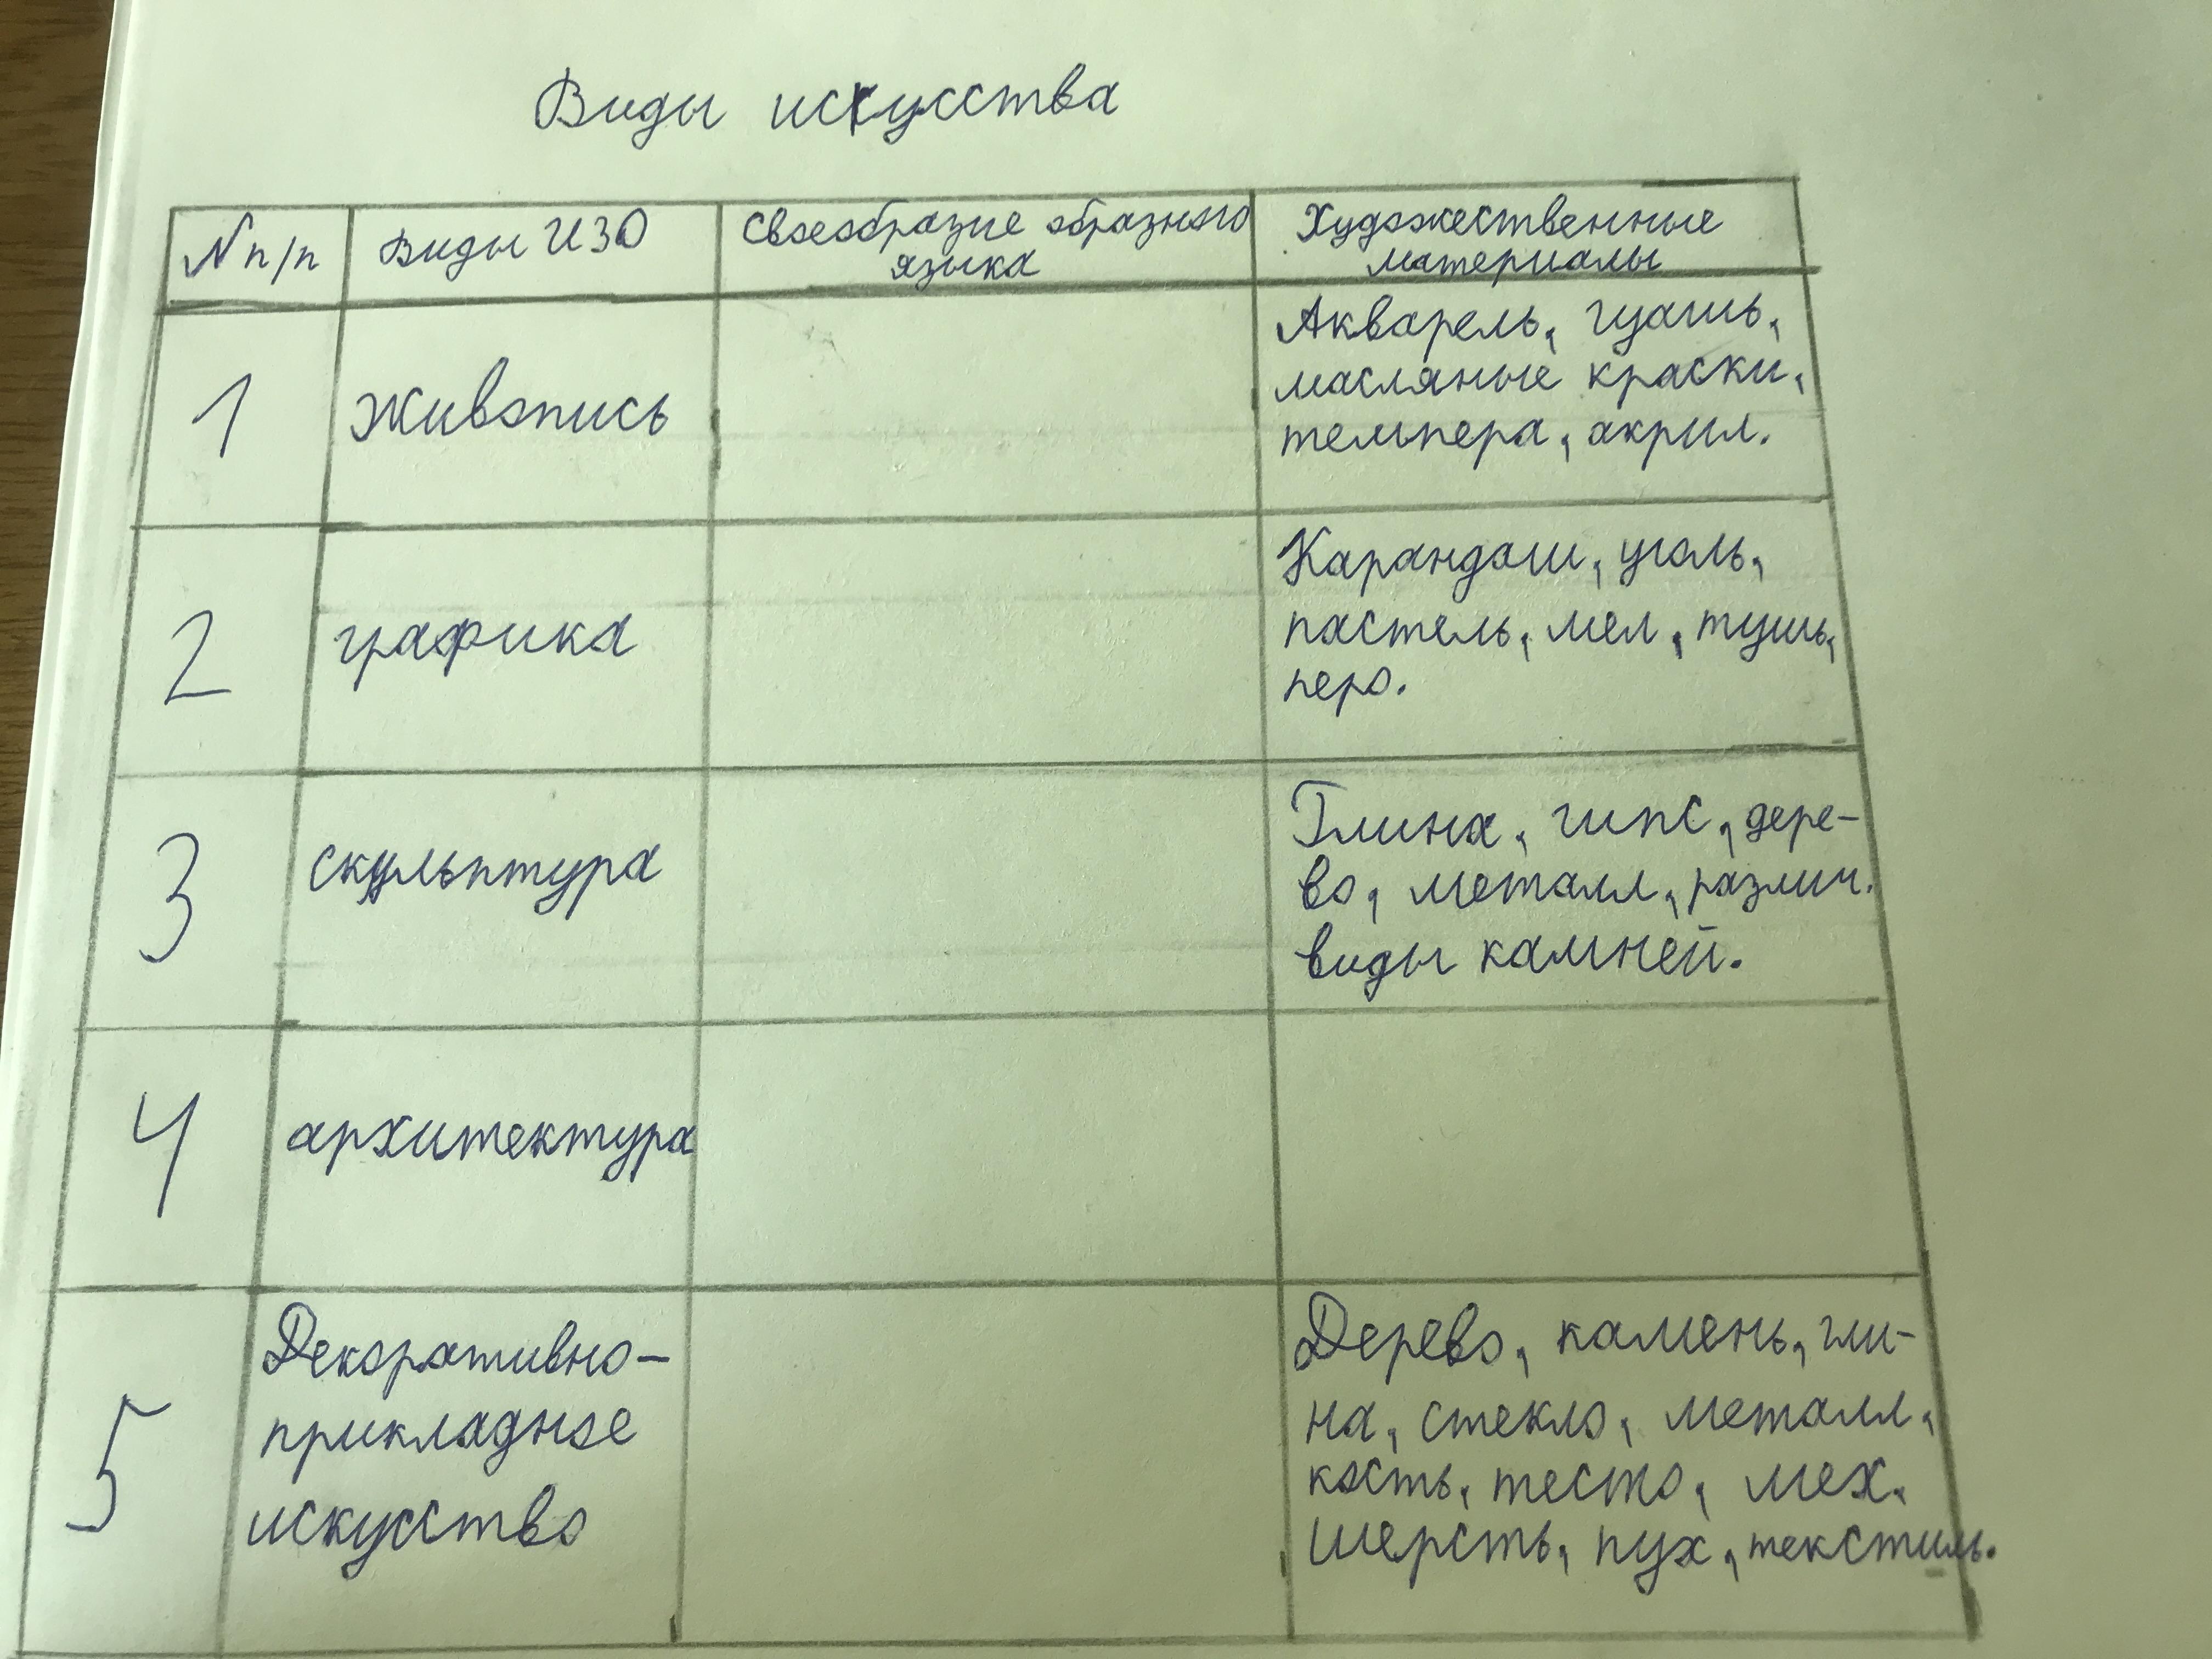 Виды искусства
N п/п
Виды ИЗО
Своеобразие образного
языка
Художественные
материалы
1
живопись
Акварель, гуашь,
масляные краски,
темпера, акрил.
2
графика
Карандаш, уголь,
пастель, мел, тушь,
перо.
3
скульптура
Глина, гипс, дере-
во, металл, различ.
виды камней.
4
архитектура
5
Декоративно-
прикладное
искусство
Дерево, камень, гли-
на, стекло, металл,
кость, тесто, мех.
шерсть, пух, текстиль.